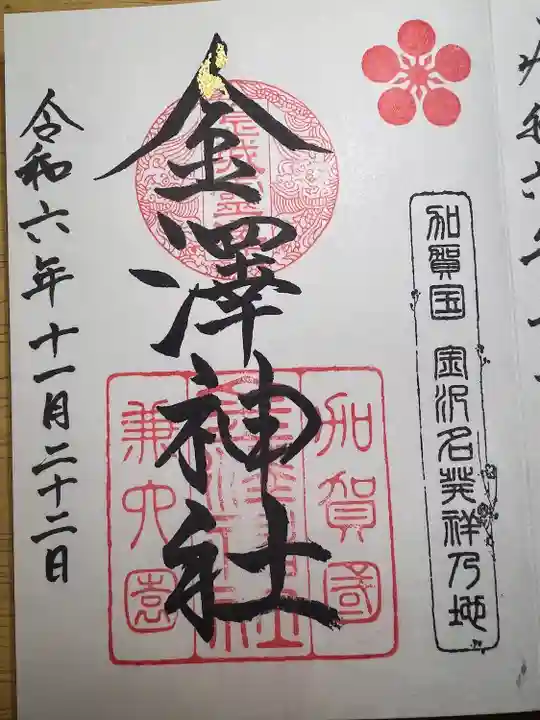 加賀国 金沢名発祥乃地
金澤神社
加賀國
兼六園
令和六年十一月二十二日